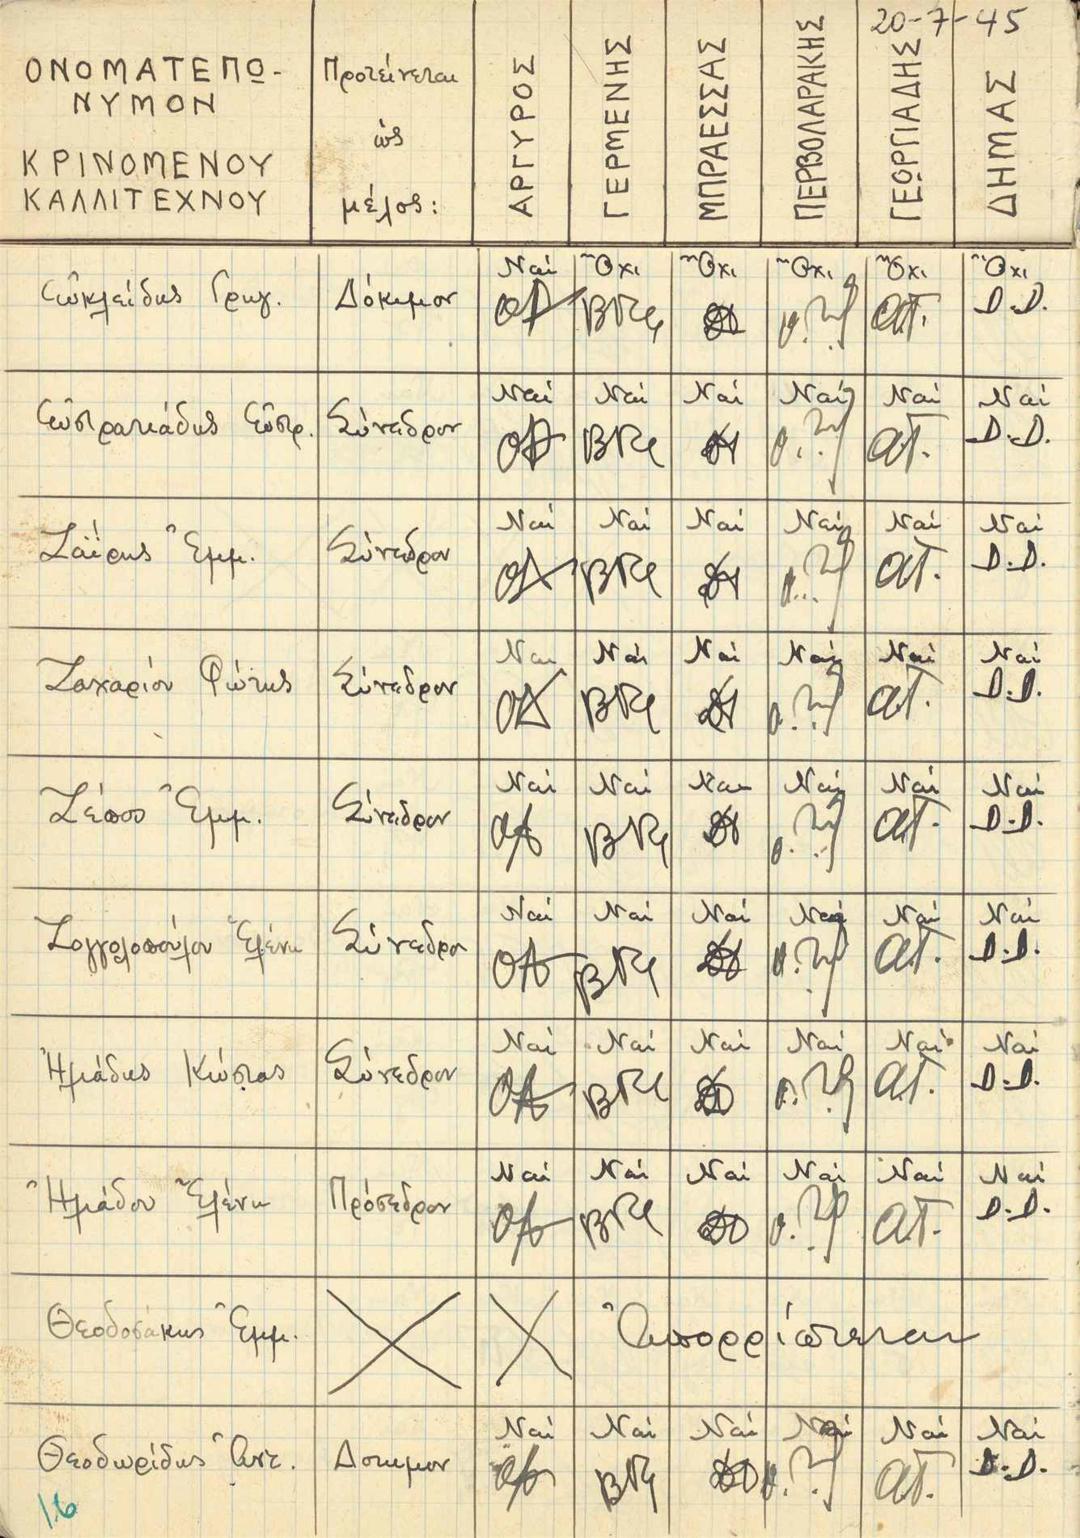 20-7-45
ΟΝΟΜΑΤΕΠΩ-
ΝΥΜΟΝ
ΚΡΙΝΟΜΕΝΟΥ
ΚΑΛΛΙΤΕΧΝΟΥ
Προτείνεται
ὡς
μέλος:
ΑΡΓΥΡΟΣ
ΓΕΡΜΕΝΗΣ
ΜΠΡΑΕΣΣΑΣ
ΠΕΡΒΟΛΑΡΑΚΗΣ
ΓΕΩΡΓΙΑΔΗΣ
ΔΗΜΑΣ
Εὐκλείδης Γρηγ. Δόκιμον Ναί Ὄχι Ὄχι Ὄχι Ὄχι Ὄχι
Εὐστρατιάδης Εὐστρ. Σύνεδρον Ναί Ναί Ναί Ναί Ναί Ναί
Ζαΐρης Ἐμμ. Σύνεδρον Ναί Ναί Ναί Ναί Ναί Ναί
Ζαχαρίου Φώτης Σύνεδρον Ναι Ναί Ναί Ναί Ναί Ναί
Ζέπος Ἐμμ. Σύνεδρον Ναί Ναί Ναι Ναί Ναί Ναί
Ζογγολοπούλου Ἑλένη Σύνεδρο Ναί Ναί Ναί Ναί Ναί Ναί
Ἠλιάδης Κώστας Σύνεδρον Ναί Ναί Ναί Ναί Ναί Ναί
Ἠλιάδου Ἑλένη Πρόσεδρον Ναί Ναί Ναί Ναί Ναί Ναί
Θεοδοσάκης Ἐμμ. Ἀπορρίπτεται
Θεοδωρίδης Ἀντ. Δοκιμον Ναί Ναί Ναί Ναί Ναί Ναί
16